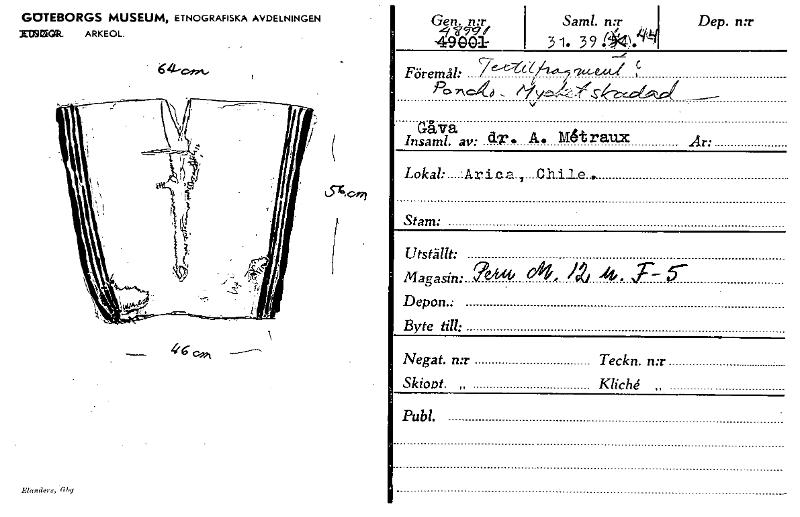 GÖTEBORGS MUSEUM, ETNOGRAFISKA AVDELNINGEN
ARKEOL.
64 cm
56 cm
46 cm
Elanders, Gbg
Gen. n:r Saml. n:r Dep. n:r
48991
49001 31. 39. 44
Föremål: Textilfragment?
Poncho. Mycket skadad
Gåva
Insaml. av: dr. A. Métraux År:
Lokal: Arica, Chile.
Stam:
Utställt:
Magasin: Peru M. 12 u. F-5
Depon.:
Byte till:
Negat. n:r Teckn. n:r
Skiopt. „ Kliché „
Publ.